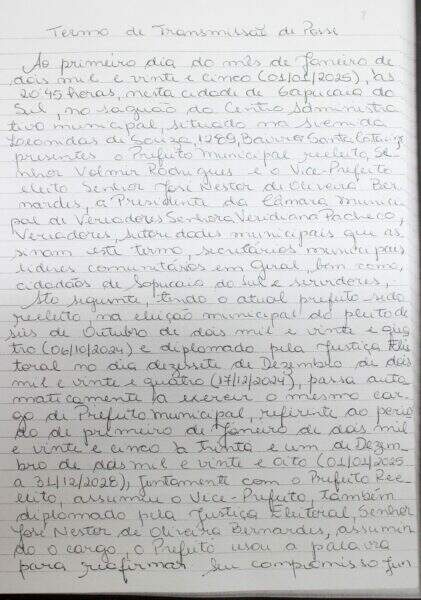 Termo de Transmissão de Posse
Ao primeiro dia do mês de Janeiro de
dois mil e vinte e cinco (01/01/2025), às
20:45 horas, nesta cidade de Sapucaia do
Sul, no saguão do Centro Administra
tivo municipal, situado na Avenida
Leonidas de Souza, 1289, Bairro Santa Catarina,
presentes o Prefeito Municipal reeleito, Se-
nhor Volmir Rodrigues e o Vice-Prefeito
eleito Senhor José Nestor de Oliveira Ber
nardes, a Presidente da Câmara Munici
pal de Vereadores Senhora Veridiana Pacheco,
Vereadores, autoridades municipais que as
sinam este termo, secretários municipais
líderes comunitários em geral, bem como,
cidadãos de Sapucaia do Sul e servidores.
Ato seguinte, tendo o atual prefeito sido
reeleito na eleição municipal do pleito de
seis de Outubro de dois mil e vinte e qua
tro (06/10/2024) e diplomado pela Justiça Elei
toral no dia dezessete de Dezembro de dois
mil e vinte e quatro (17/12/2024), passa auto
maticamente a exercer o mesmo car
go de Prefeito Municipal, referente ao perío
do de primeiro de Janeiro de dois mil
e vinte e cinco à trinta e um de Dezem
bro de dois mil e vinte e oito (01/01/2025
a 31/12/2028), juntamente com o Prefeito Ree-
leito, assumiu o Vice-Prefeito, também
diplomado pela Justiça Eleitoral, Senhor
José Nestor de Oliveira Bernardes, assumin
do o cargo, o Prefeito usou a palavra
para reafirmar seu compromisso jun